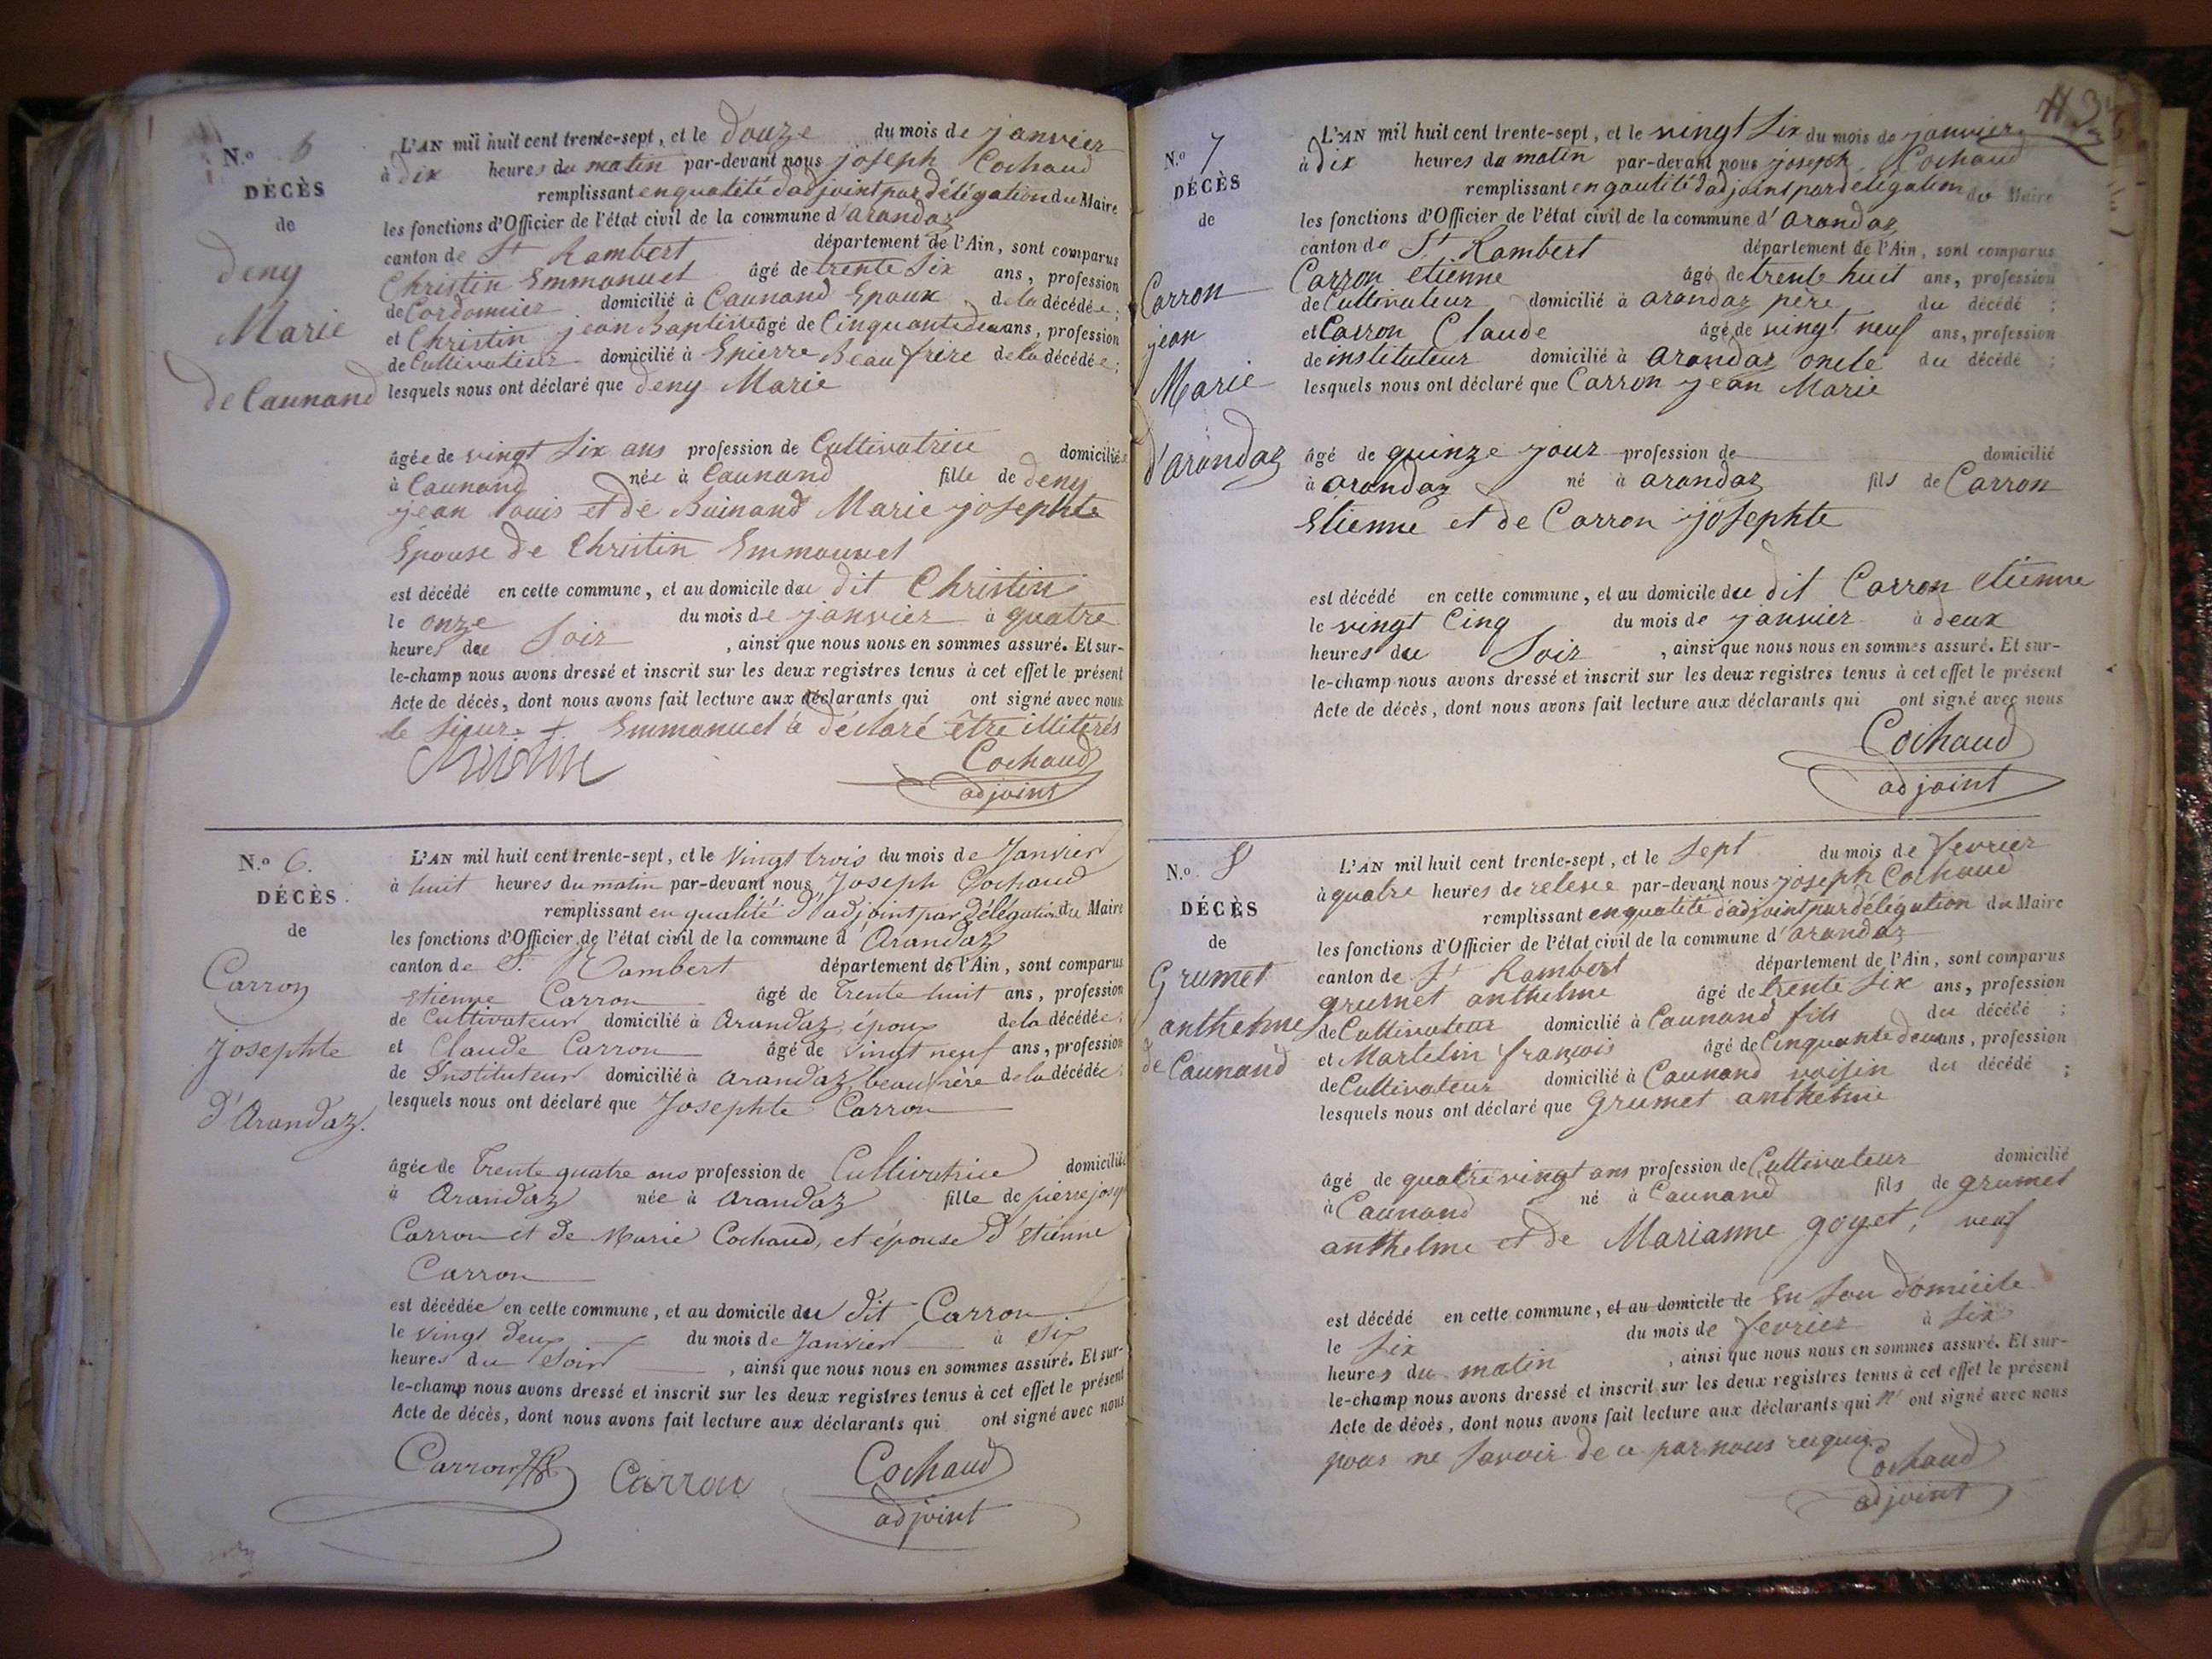 N.o 5
DÉCÈS
de
deny
Marie
de Caunand
L'AN mil huit cent trente-sept, et le douze du mois de janvier
à dix heures du matin par-devant nous joseph Cochaud
remplissant en qualité d'adjoint par délégation du Maire
les fonctions d'Officier de l'état civil de la commune d'arandaz
canton de St Rambert département de l'Ain, sont comparus
Christin Emmanuel âgé de trente six ans, profession
de Cordonnier domicilié à Caunand Epoux de la décédée;
et Christin jean Baptiste âgé de Cinquante deux ans, profession
de Cultivateur domicilié à Epierre Beau frère de la décédée;
lesquels nous ont déclaré que deny Marie
âgée de vingt six ans profession de Cultivatrice domiciliée
à Caunand née à Caunand fille de deny
jean Louis et de Buinand Marie josephte
Epouse de Christin Emmanuel
est décédé en cette commune, et au domicile du dit Christin
le onze du mois de janvier à quatre
heures du Soir , ainsi que nous nous en sommes assuré. Et sur-
le-champ nous avons dressé et inscrit sur les deux registres tenus à cet effet le présent
Acte de décès, dont nous avons fait lecture aux déclarants qui ont signé avec nous
le Emmanuel à déclaré être illitérés
Christin Cochaud
adjoint
N.o 6.
DÉCÈS
de
Carron
Josephte
d'Arandaz.
L'AN mil huit cent trente-sept, et le vingt trois du mois de Janvier
à huit heures du matin par-devant nous Joseph Cochaud
remplissant en qualité d'adjoint par délégation du Maire
les fonctions d'Officier de l'état civil de la commune d'Arandaz
canton de St Rambert département de l'Ain, sont comparus
etienne Carron âgé de trente huit ans, profession
de Cultivateur domicilié à Arandaz, époux de la décédée;
et Claude Carron âgé de vingt neuf ans, profession
de Instituteur domicilié à arandaz, beau frère de la décédée;
lesquels nous ont déclaré que Josephte Carron
âgée de trente quatre ans profession de Cultivatrice domiciliée
à Arandaz née à Arandaz fille de pierre joseph
Carron et de Marie Cochaud, et épouse d'etienne
Carron
est décédée en cette commune, et au domicile du dit Carron
le vingt deux du mois de Janvier à six
heures du Soir , ainsi que nous nous en sommes assuré. Et sur-
le-champ nous avons dressé et inscrit sur les deux registres tenus à cet effet le présent
Acte de décès, dont nous avons fait lecture aux déclarants qui ont signé avec nous
Carron Carron Cochaud
adjoint
N.o 7
DÉCÈS
de
Carron
jean
Marie
d'arandaz
L'AN mil huit cent trente-sept, et le vingt six du mois de janvier
à dix heures du matin par-devant nous joseph Cochaud
remplissant en qautité d'adjoint par délégation du Maire
les fonctions d'Officier de l'état civil de la commune d'arandaz
canton de St Rambert département de l'Ain, sont comparus
Carron etienne âgé de trente huit ans, profession
de Cultivateur domicilié à arandaz pere du décédé ;
et Carron Claude âgé de vingt neuf ans, profession
de instituteur domicilié à arandaz oncle du décédé ;
lesquels nous ont déclaré que Carron jean Marie
âgé de quinze jour profession de domicilié
à arandaz né à arandaz fils de Carron
Etienne et de Carron josephte
est décédé en cette commune, et au domicile du dit Carron etienne
le vingt Cinq du mois de janvier à deux
heures du Soir , ainsi que nous nous en sommes assuré. Et sur-
le-champ nous avons dressé et inscrit sur les deux registres tenus à cet effet le présent
Acte de décès, dont nous avons fait lecture aux déclarants qui ont signé avec nous
Cochaud
adjoint
N.o 8
DÉCÈS
de
Grumet
anthelme
de Caunand
L'AN mil huit cent trente-sept, et le Sept du mois de fevrier
à quatre heures de releve par-devant nous joseph Cochaud
remplissant en qualité d'adjoint par délégation du Maire
les fonctions d'Officier de l'état civil de la commune d'arandaz
canton de St Rambert département de l'Ain, sont comparus
grumet anthelme âgé de trente six ans, profession
de Cultivateur domicilié à Caunand fils du décédé ;
et Martelin françois âgé de Cinquante deux ans, profession
de Cultivateur domicilié à Caunand voisin du décédé ;
lesquels nous ont déclaré que grumet anthelme
âgé de quatre vingt ans profession de Cultivateur domicilié
à Caunand né à Caunand fils de grumet
anthelme et de Marianne goyet, veuf
est décédé en cette commune, et au domicile de En Son domicile
le Six du mois de fevrier à Six
heures du matin , ainsi que nous nous en sommes assuré. Et sur-
le-champ nous avons dressé et inscrit sur les deux registres tenus à cet effet le présent
Acte de décès, dont nous avons fait lecture aux déclarants qui n'ont signé avec nous
pour ne Savoir de ce par nous requis
Cochaud
adjoint